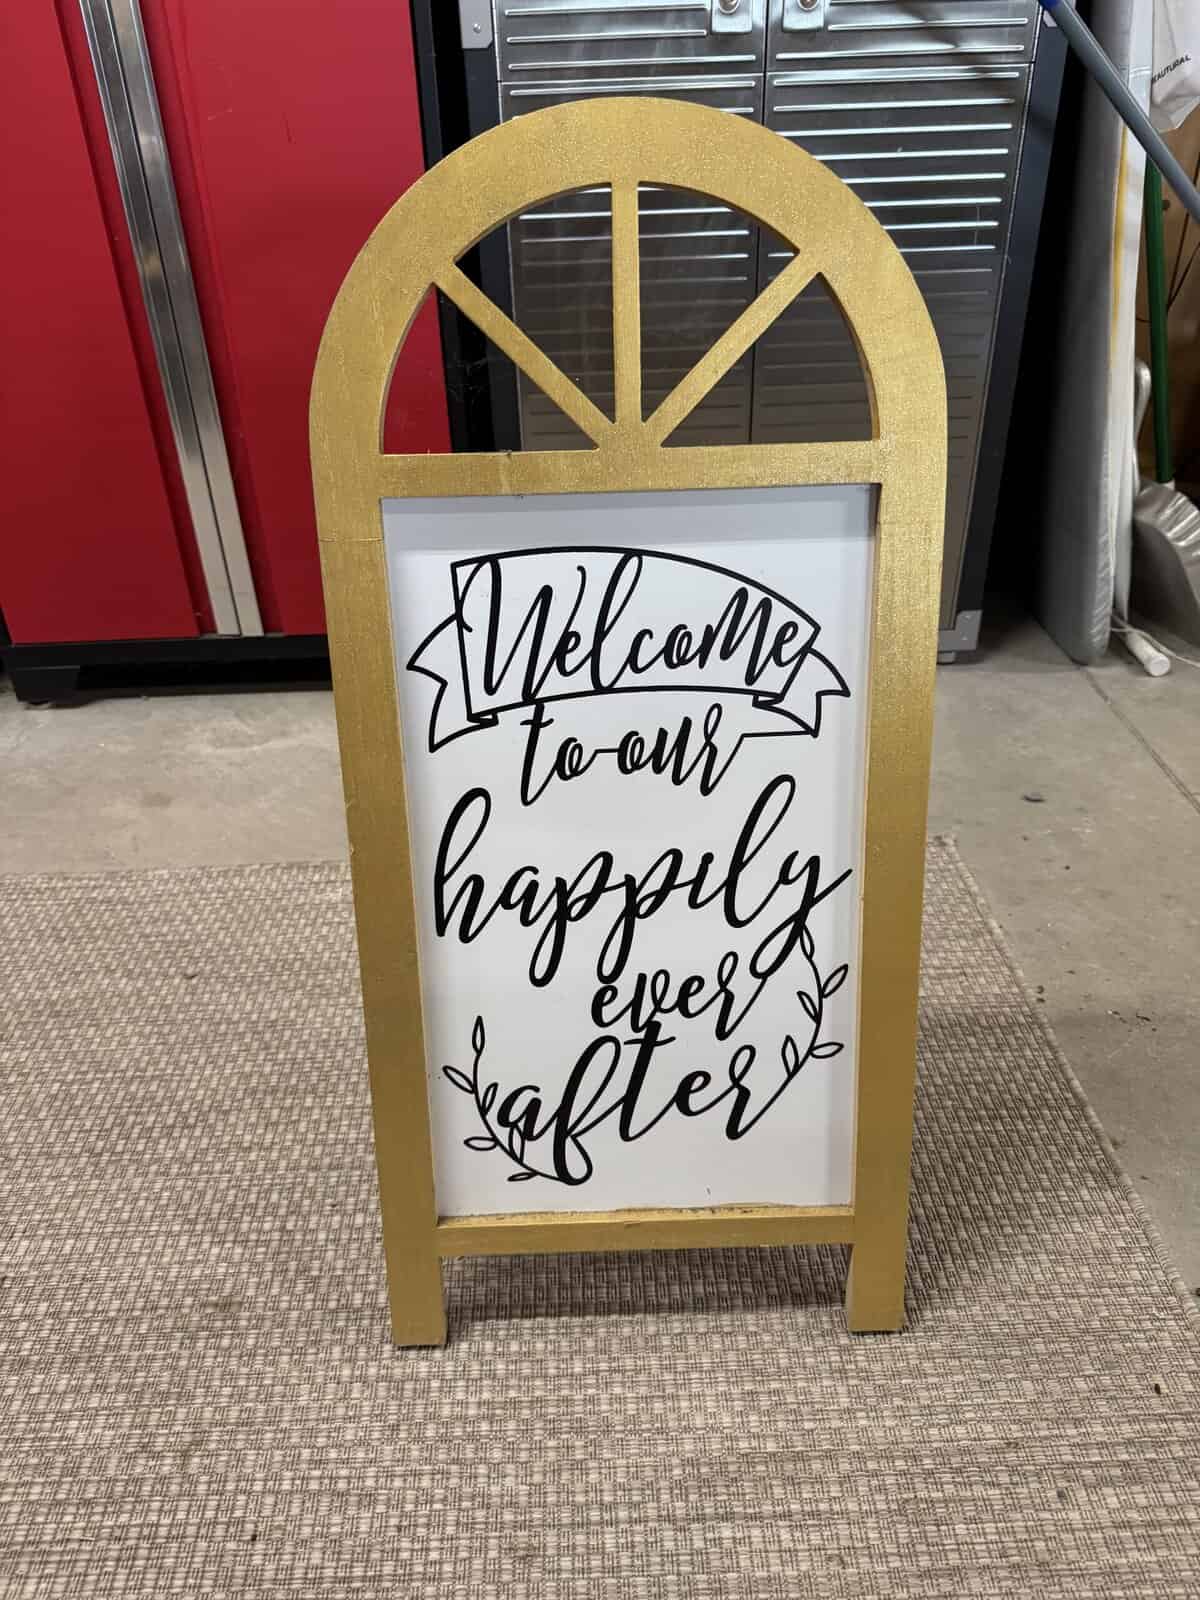 Welcome
to our
happily
ever
after